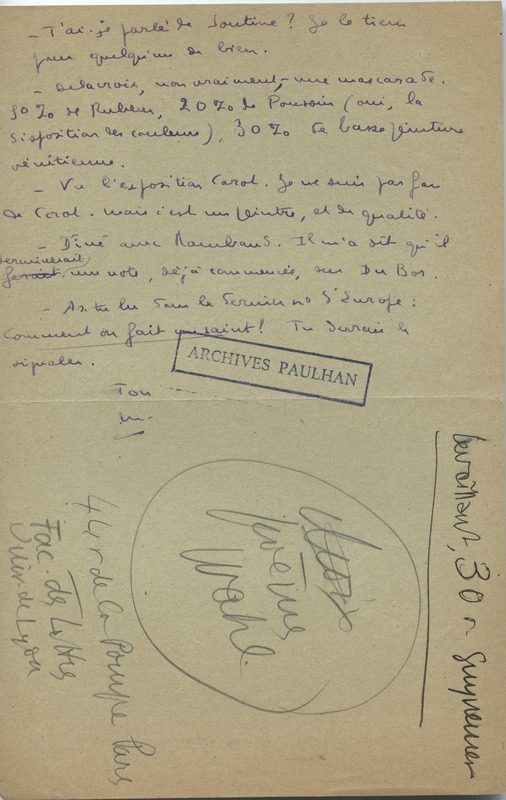 - T'ai-je parlé de Soutine ? Je le tiens
pour quelqu'un de bien.
- Delacroix, non vraiment, - une mascarade.
50 % de Rubens, 20 % de Poussin (oui, la
disposition des couleurs), 30 % de basse peinture
vénitienne.
- Vu l'exposition Corot. Je ne suis pas fou
de Corot. mais c'est un peintre, et de qualité.
- Dîné avec Rambaud. Il m'a dit qu'il
terminerait
ferait une note, déjà commencée, sur Du Bos.
- As-tu lu dans le dernier no d'Europe :
Comment on fait un saint ! Tu devrais le
signaler.
Ton
M.
ARCHIVES PAULHAN
Levaillant, 30 r Guynemer
Wahl
44 r de la Pompe Paris
Fac. de Lettres
Univ de Lyon